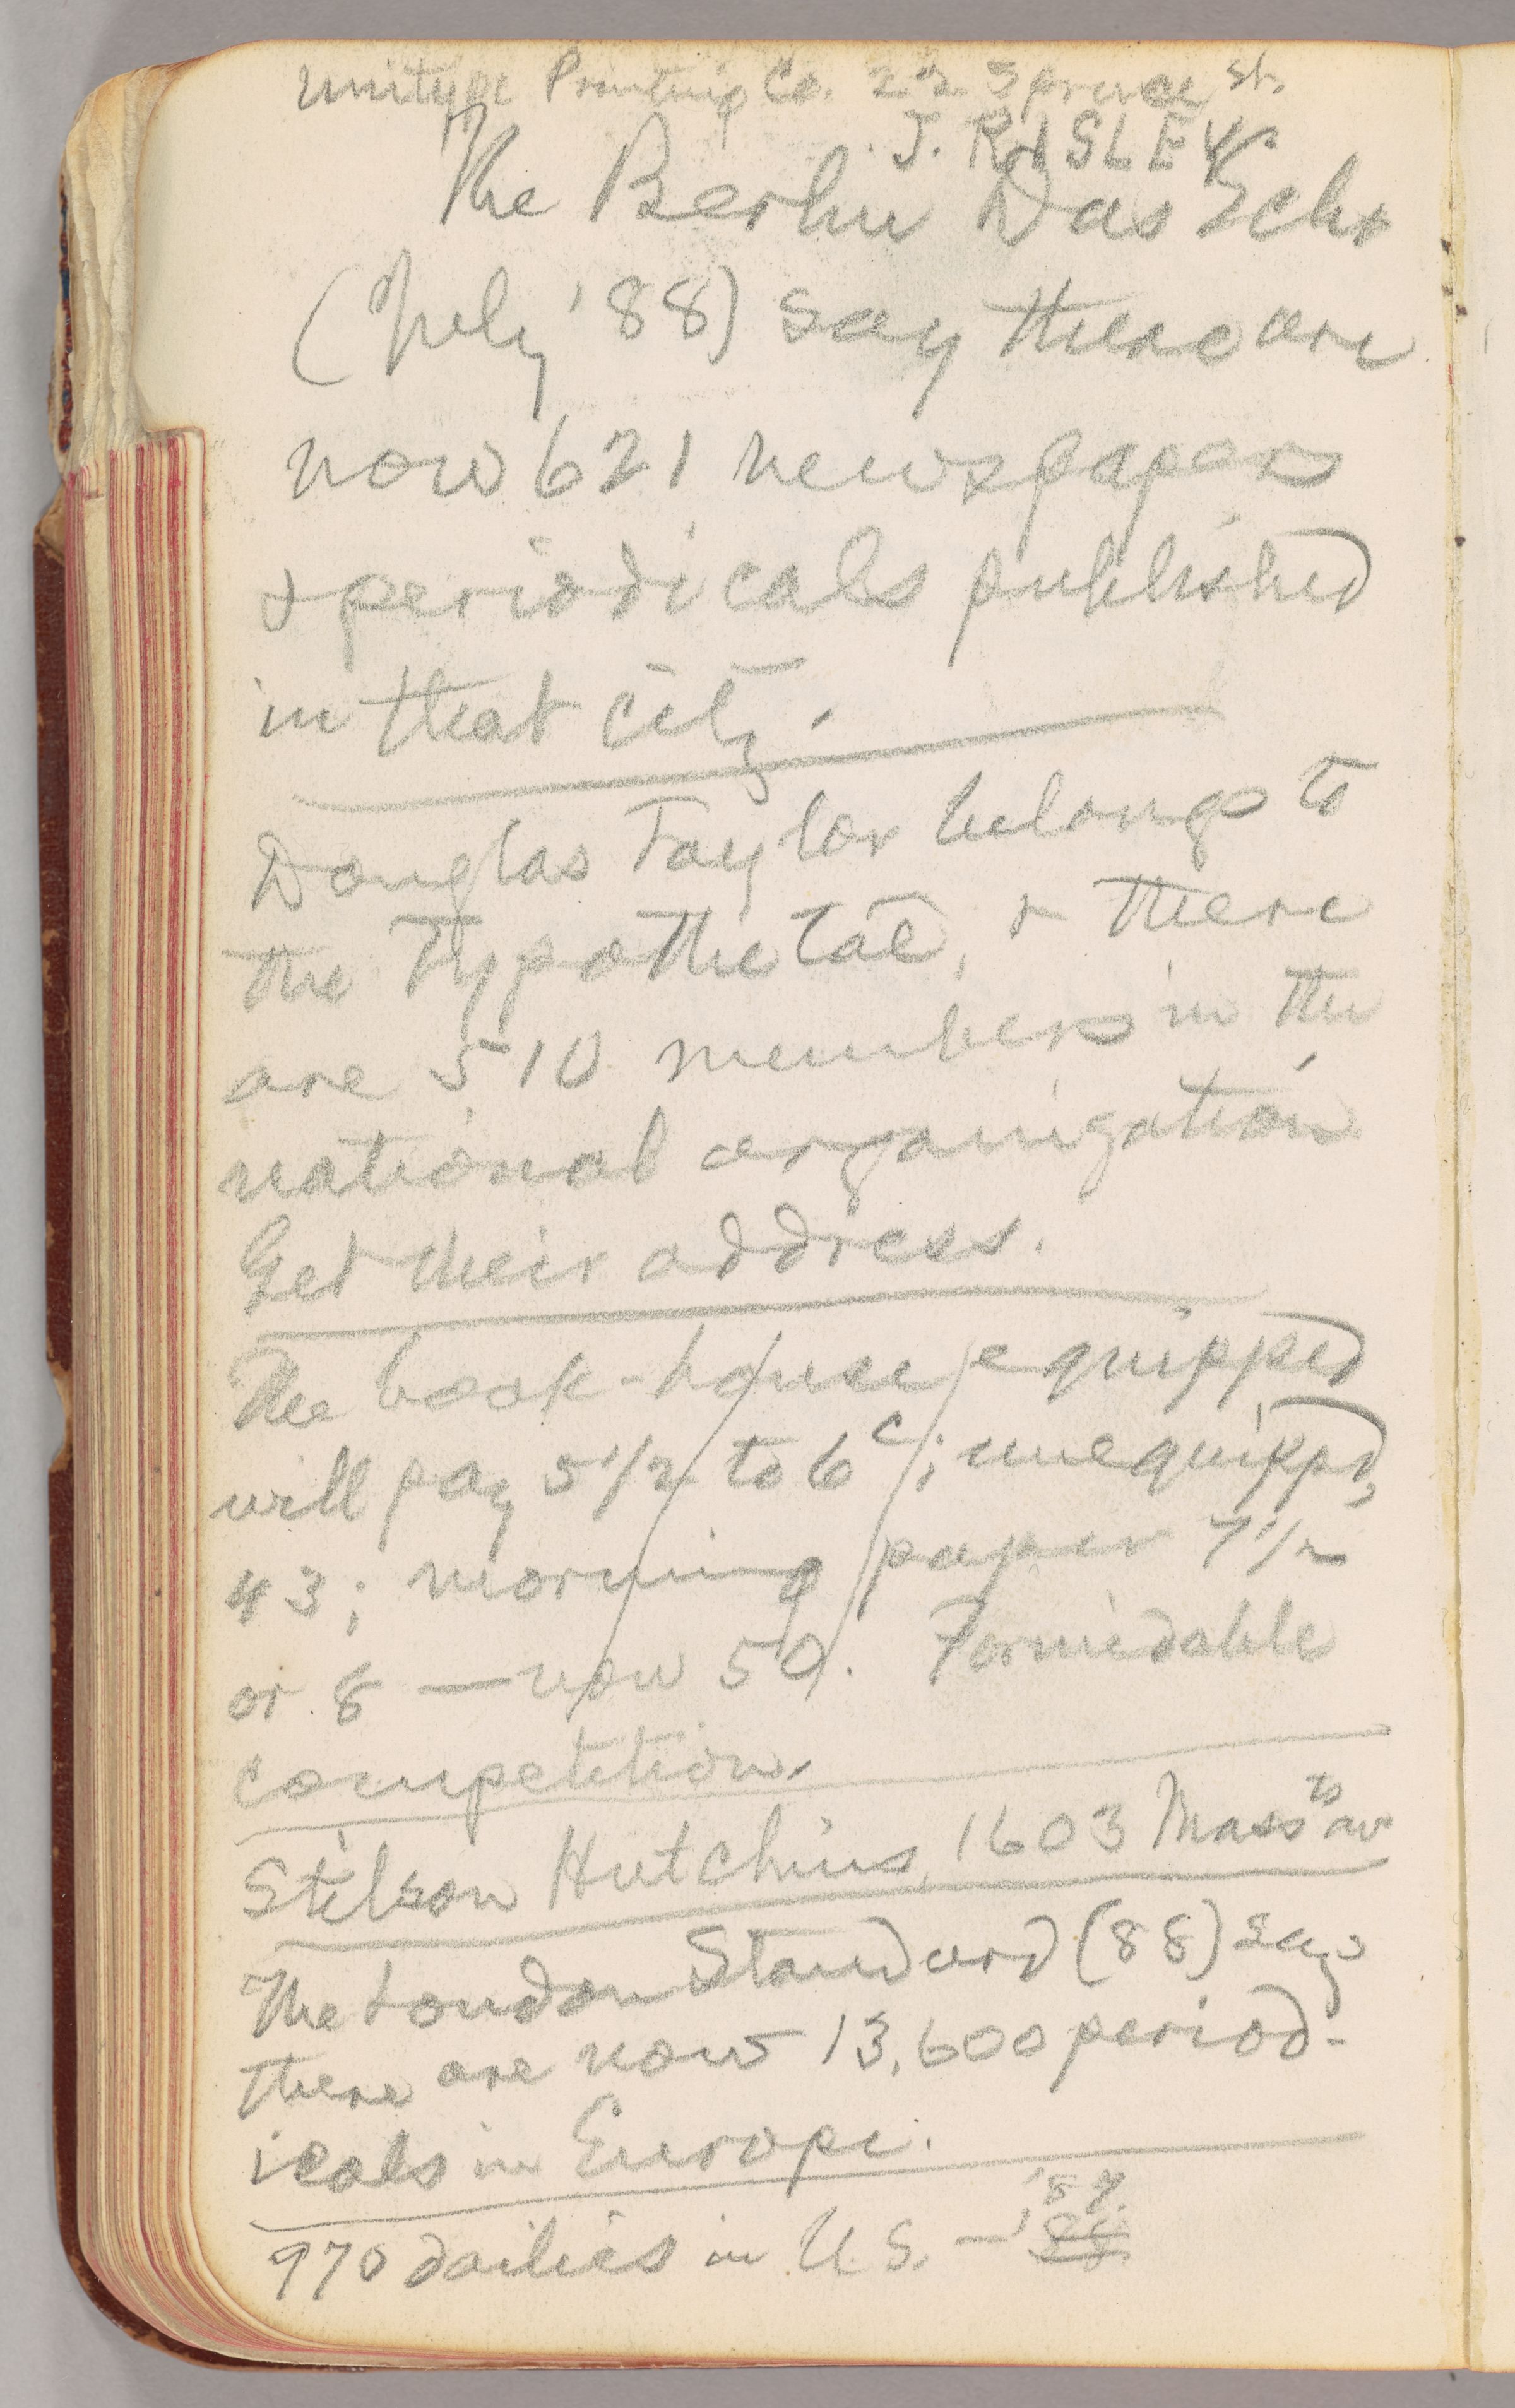 Unitype Printing Co. 22 Spruce St.
J. RISLEY
The Berlin Das Echo
(July '88) say there are
now 621 newspapers
& periodicals published
in that city.
Douglas Taylor belongs to
the Typothetae, & there
are 510 members in the
national organization
Get their address.
The book-house, equipped
will pay 5 1/2 to 6c; unequippd,
43; morning paper 7 1/2
or 8 — now 50. Formidable
competition.
Stilson Hutchins, 1603 Massts av
The London Standard (88) says
there are now 13,600 period-
icals in Europe.
'87.
970 dailies in U.S. — '88